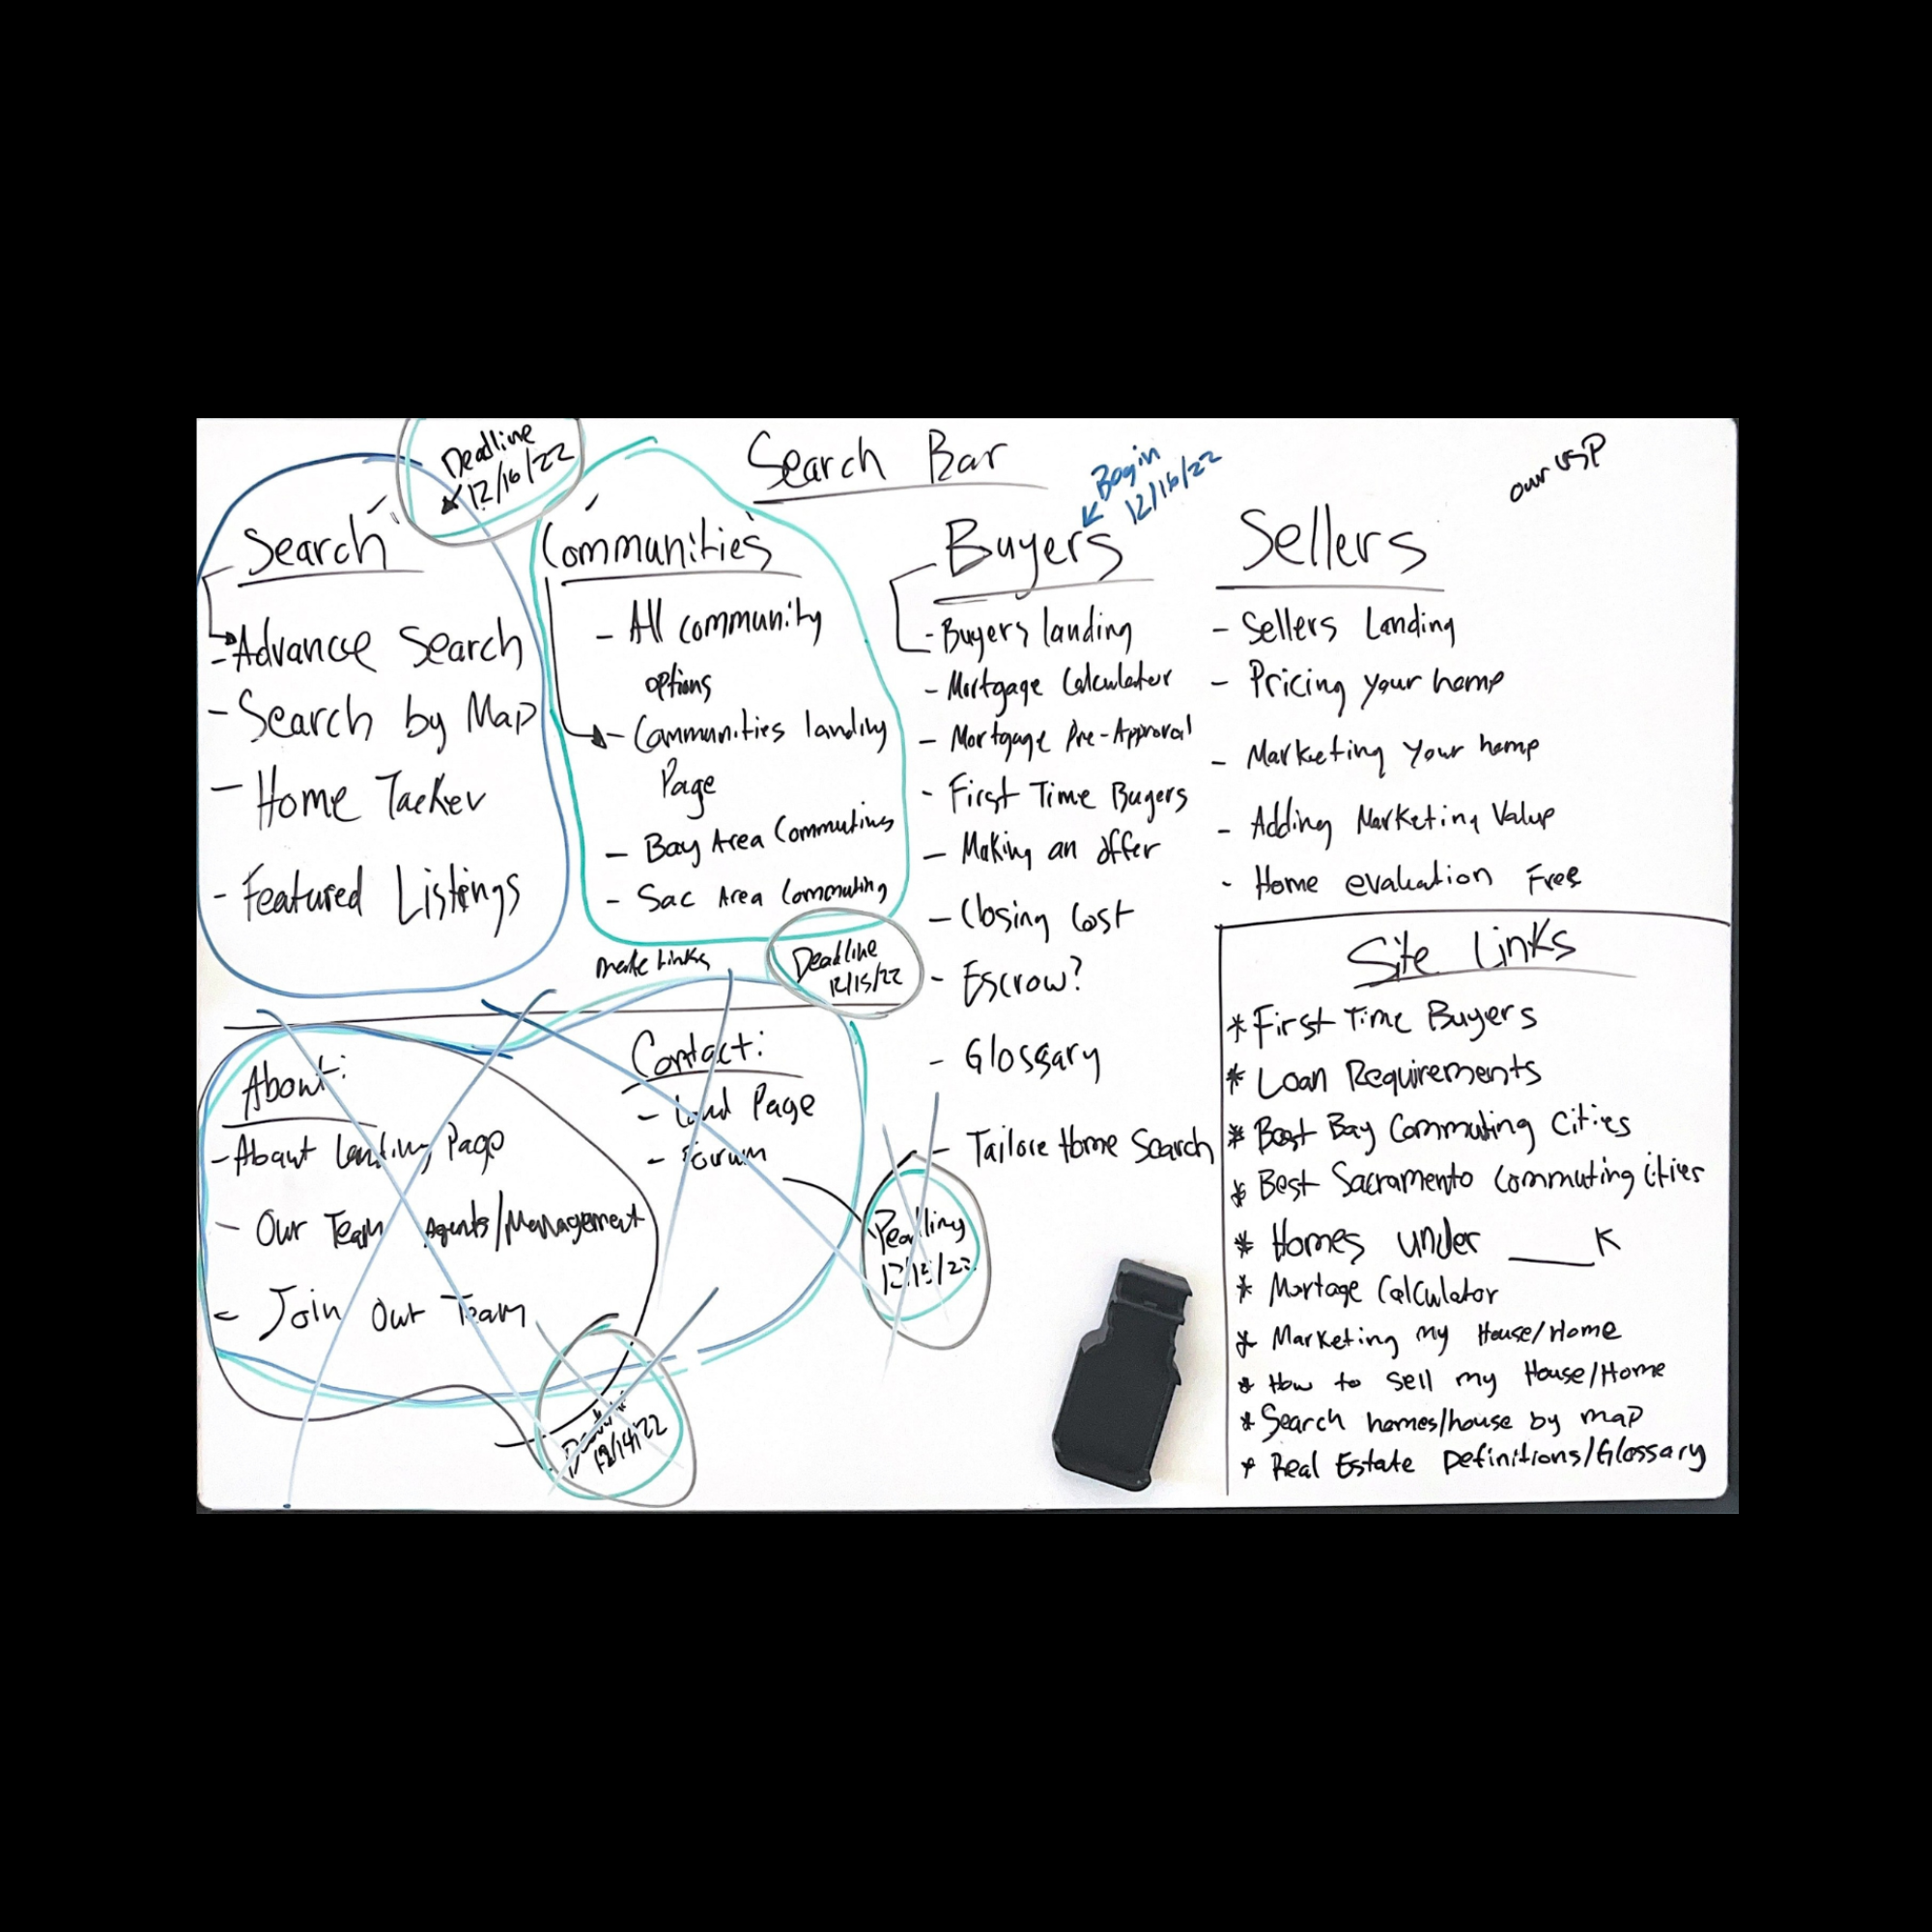 Search Bar
our USP
Deadline
12/16/22
Search
- Advance Search
- Search by Map
- Home Tacker
- Featured Listings
Communities
- All community
options
- Communities landing
Page
- Bay Area Commuting
- Sac Area Commuting
Deadline
12/15/22
made Links
Begin
12/16/22
Buyers
- Buyers landing
- Mortgage Calculator
- Mortgage Pre-Approval
- First Time Buyers
- Making an offer
- Closing Cost
- Escrow?
- Glossary
- Tailore Home Search
Sellers
- Sellers Landing
- Pricing your home
- Marketing Your home
- Adding Marketing Value
- Home evaluation Free
About:
- About Landing Page
- Our Team Agents/Management
- Join Our Team
12/14/22
Contact:
- Page
- Forum
Site Links
* First Time Buyers
* Loan Requirements
* Best Bay Commuting Cities
* Best Sacramento Commuting Cities
* Homes under ____K
* Mortage Calculator
* Marketing my House/Home
* How to sell my House/Home
* Search homes/house by map
* Real Estate Definitions/Glossary